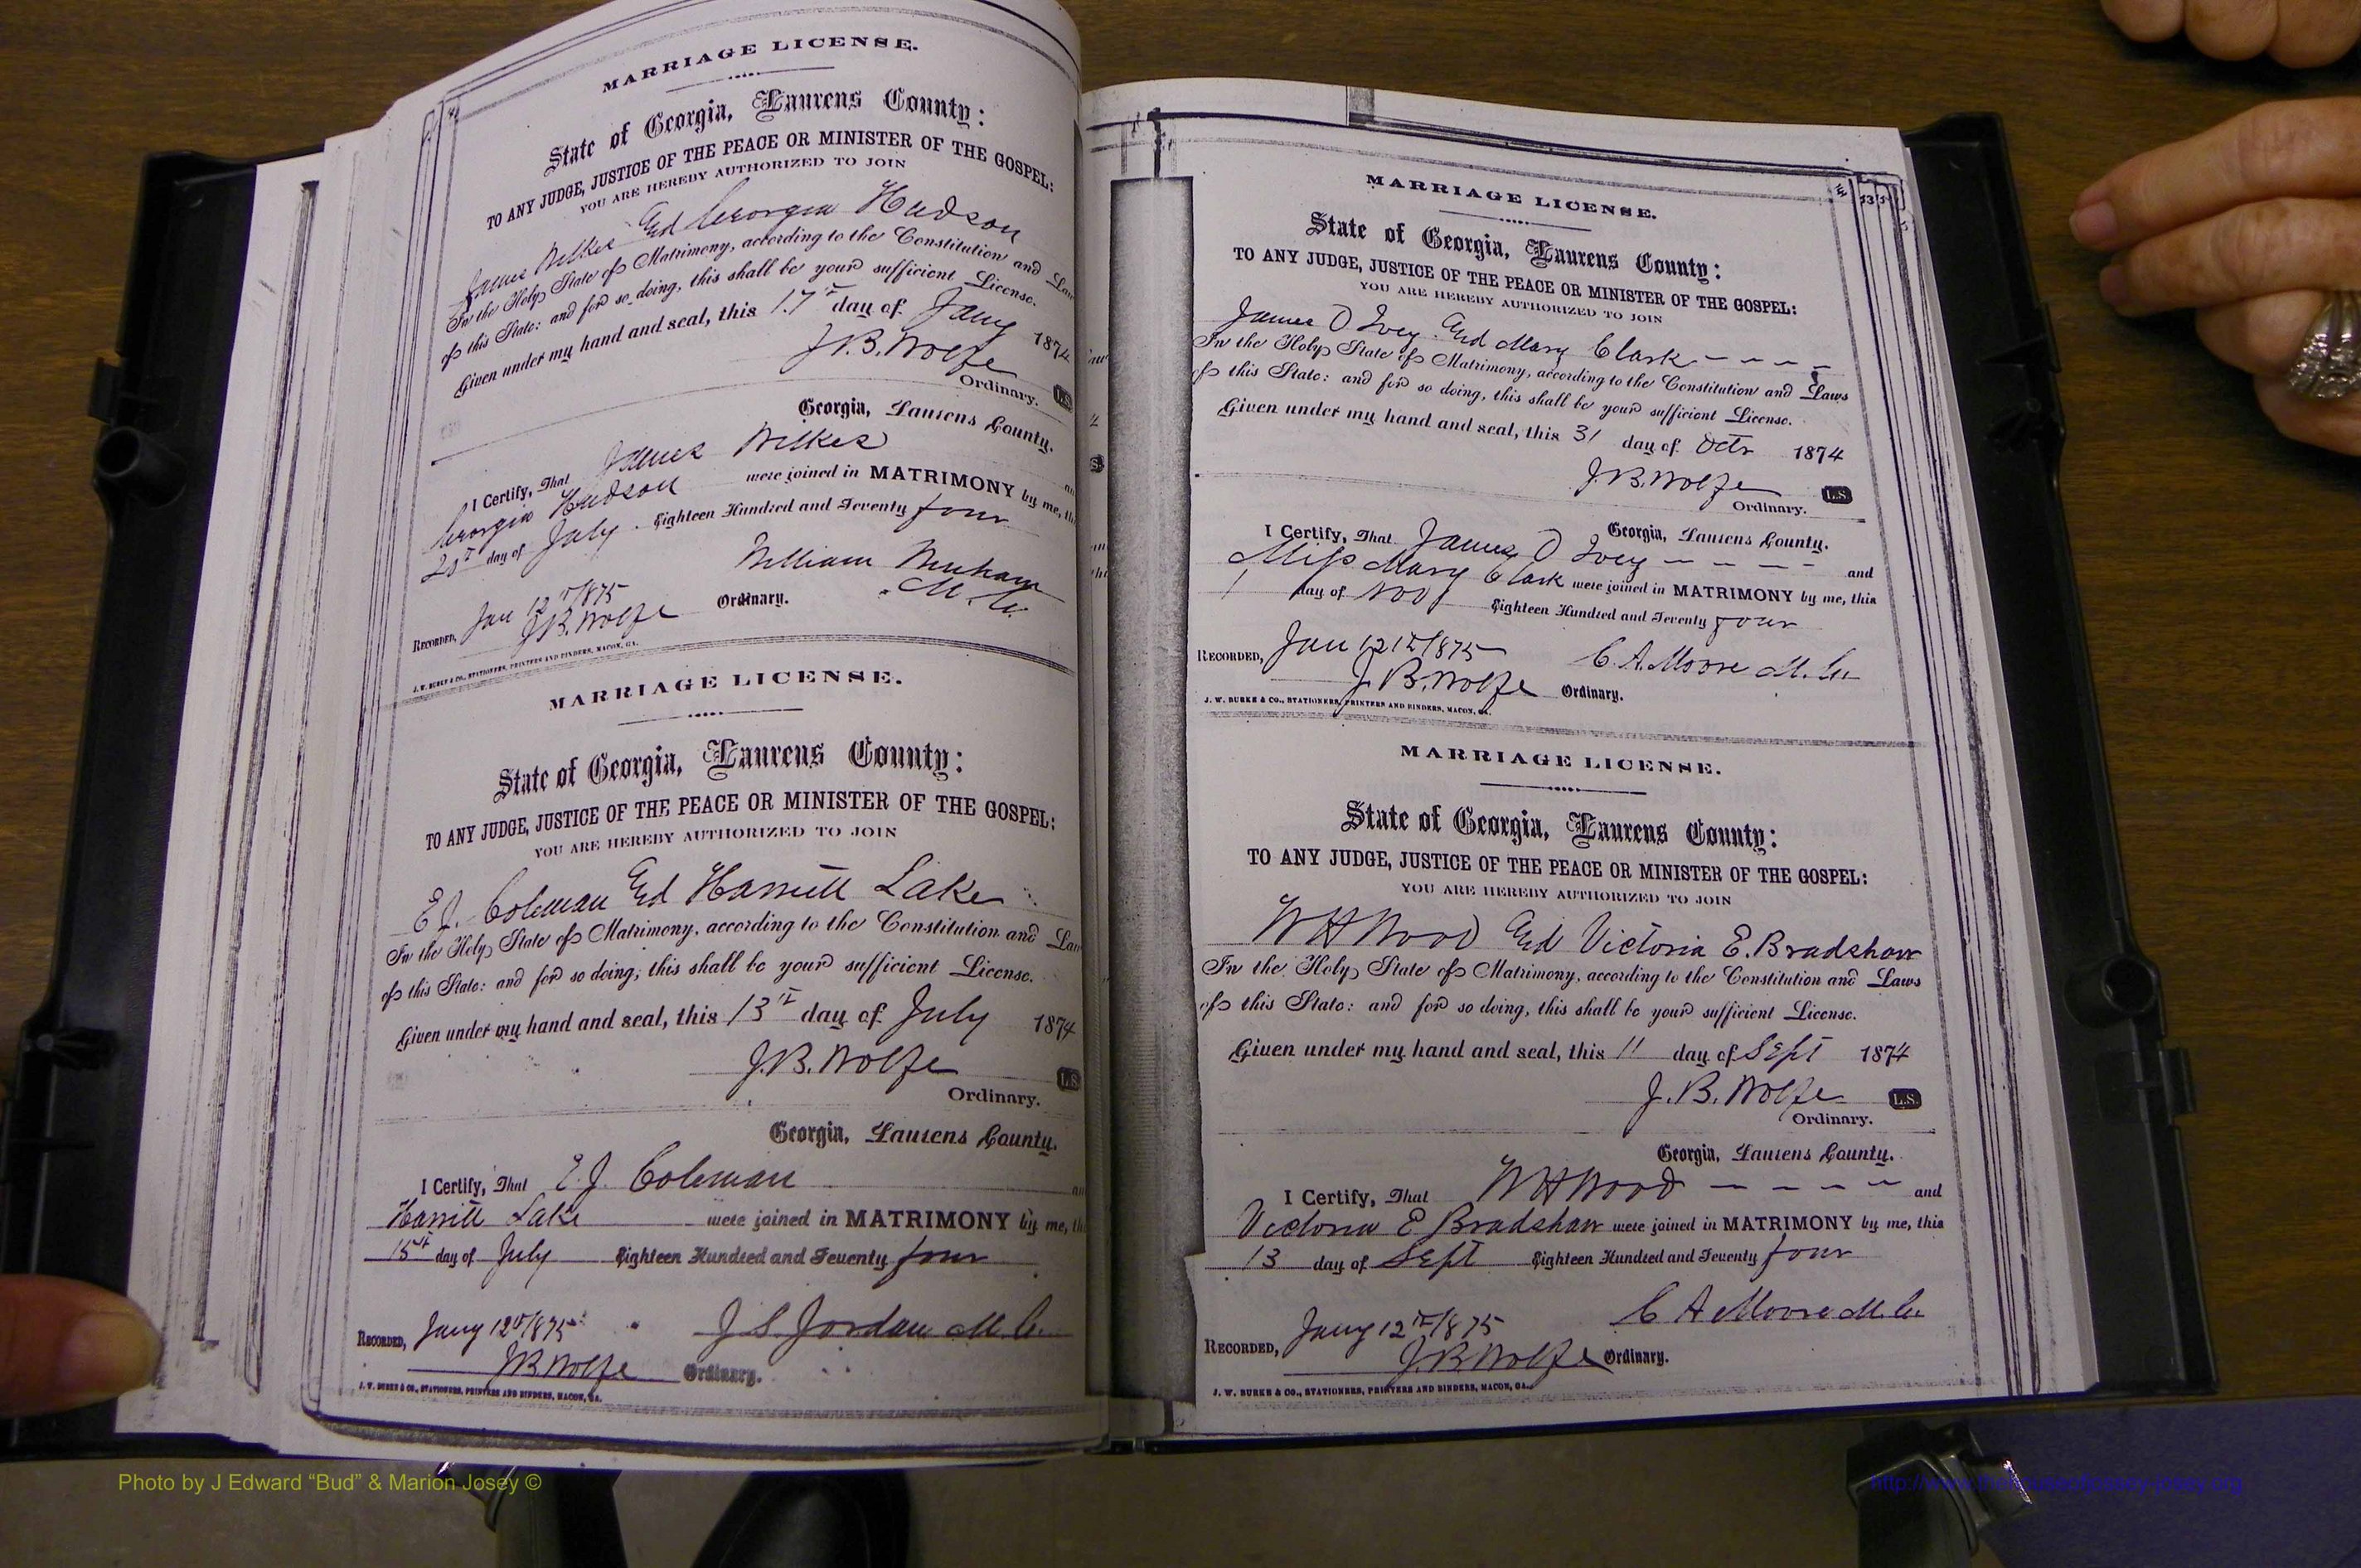 MARRIAGE LICENSE.
State of Georgia, Laurens County:
TO ANY JUDGE, JUSTICE OF THE PEACE OR MINISTER OF THE GOSPEL:
YOU ARE HEREBY AUTHORIZED TO JOIN
James Wilkes Georgia Hudson
In the Holy State of Matrimony, according to the Constitution and Law
of this State: and for so doing, this shall be your sufficient License.
Given under my hand and seal, this 17th day of Jany 1874
J.B. Wolfe
Ordinary. L.S.
Georgia, Laurens County.
I Certify, That James Wilkes
Georgia Hudson were joined in MATRIMONY by me, th
day of July Eighteen Hundred and Seventy four
William
Recorded, Jan 12th/1875
J.B. Wolfe Ordinary.
J. W. BURKE & CO., STATIONERS, PRINTERS AND BINDERS, MACON, GA.
MARRIAGE LICENSE.
State of Georgia, Laurens County:
TO ANY JUDGE, JUSTICE OF THE PEACE OR MINISTER OF THE GOSPEL:
YOU ARE HEREBY AUTHORIZED TO JOIN
E.J. Coleman Harriett Lake
In the Holy State of Matrimony, according to the Constitution and Law
of this State: and for so doing, this shall be your sufficient License.
Given under my hand and seal, this 13th day of July 1874
J.B. Wolfe
Ordinary. L.S.
Georgia, Laurens County.
I Certify, That E.J. Coleman
Harriett Lake were joined in MATRIMONY by me, th
15th day of July Eighteen Hundred and Seventy four
J.S. Jordan M.G.
Recorded, Jany 12th/1875
J.B. Wolfe Ordinary.
J. W. BURKE & CO., STATIONERS, PRINTERS AND BINDERS, MACON, GA.
MARRIAGE LICENSE.
State of Georgia, Laurens County:
TO ANY JUDGE, JUSTICE OF THE PEACE OR MINISTER OF THE GOSPEL:
YOU ARE HEREBY AUTHORIZED TO JOIN
James O Ivey Mary Clark
In the Holy State of Matrimony, according to the Constitution and Laws
of this State: and for so doing, this shall be your sufficient License.
Given under my hand and seal, this 31 day of Octr 1874
J.B. Wolfe L.S.
Ordinary.
Georgia, Laurens County.
I Certify, That James O Ivey and
Miss Mary Clark were joined in MATRIMONY by me, this
1 day of Nov Eighteen Hundred and Seventy four
C. A. Moore M.G.
Recorded, Jan 12th/1875
J.B. Wolfe Ordinary.
J. W. BURKE & CO., STATIONERS, PRINTERS AND BINDERS, MACON, GA.
MARRIAGE LICENSE.
State of Georgia, Laurens County:
TO ANY JUDGE, JUSTICE OF THE PEACE OR MINISTER OF THE GOSPEL:
YOU ARE HEREBY AUTHORIZED TO JOIN
W H Wood Victoria E. Bradshaw
In the Holy State of Matrimony, according to the Constitution and Laws
of this State: and for so doing, this shall be your sufficient License.
Given under my hand and seal, this 11 day of Sept 1874
J.B. Wolfe L.S.
Ordinary.
Georgia, Laurens County.
I Certify, That W H Wood and
Victoria E Bradshaw were joined in MATRIMONY by me, this
13 day of Sept Eighteen Hundred and Seventy four
C A Moore M.G.
Recorded, Jany 12th/1875
J.B. Wolfe Ordinary.
J. W. BURKE & CO., STATIONERS, PRINTERS AND BINDERS, MACON, GA.
Photo by J Edward “Bud” & Marion Josey ©